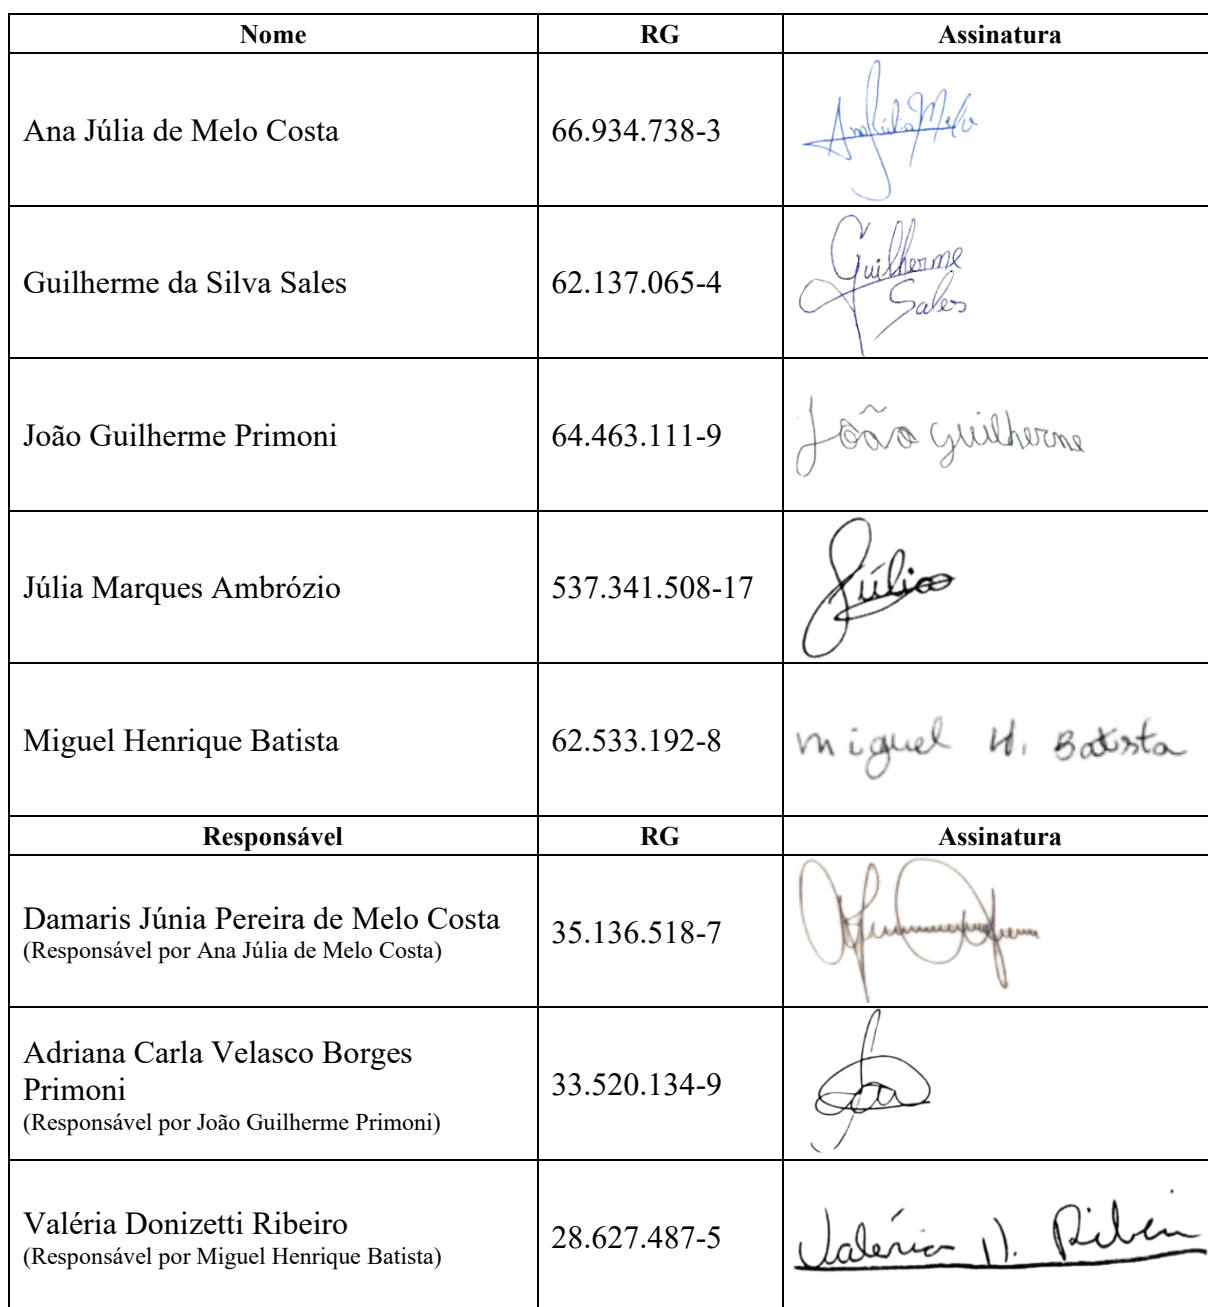 Nome RG Assinatura
Ana Júlia de Melo Costa 66.934.738-3 Ana Júlia Melo
Guilherme da Silva Sales 62.137.065-4 Guilherme
Sales
João Guilherme Primoni 64.463.111-9 João Guilherme
Júlia Marques Ambrózio 537.341.508-17 Júlia
Miguel Henrique Batista 62.533.192-8 Miguel H. Batista
Responsável RG Assinatura
Damaris Júnia Pereira de Melo Costa 35.136.518-7
(Responsável por Ana Júlia de Melo Costa)
Adriana Carla Velasco Borges
Primoni 33.520.134-9
(Responsável por João Guilherme Primoni)
Valéria Donizetti Ribeiro 28.627.487-5 Valéria D.
(Responsável por Miguel Henrique Batista)